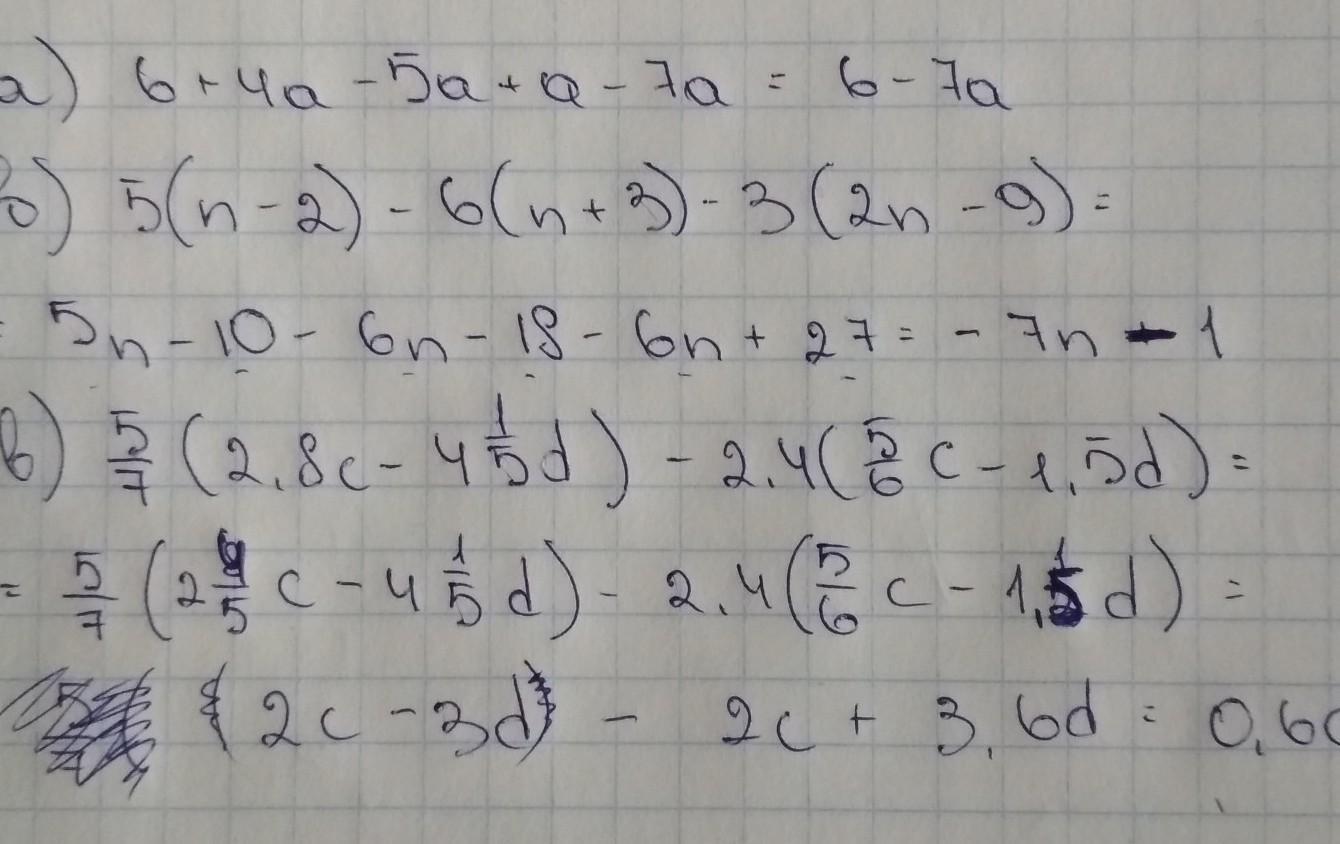 а) 6+4a-5a+a-7a = 6-7a
б) 5(n-2)-6(n+3)-3(2n-9)=
= 5n-10-6n-18-6n+27=-7n-1
в) 5/7 (2.8c-4 1/5 d)-2.4(5/6 c-1,5d)=
= 5/7 (2 4/5 c-4 1/5 d)-2.4(5/6 c-1,5d)=
2c-3d - 2c+3,6d = 0,6d